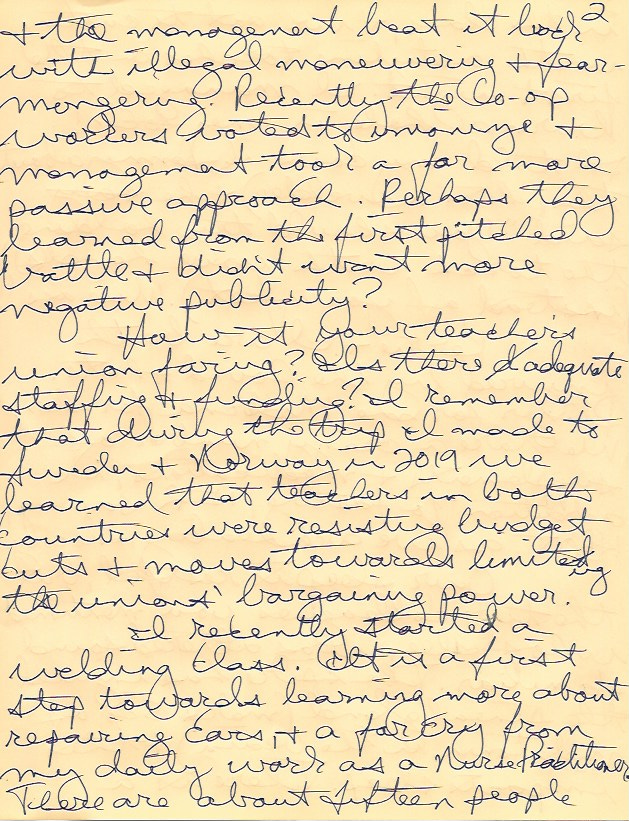 2
& the management beat it back
with illegal maneuvering & fear-
mongering. Recently the Co-op
workers voted to unionize &
management took a far more
passive approach. Perhaps they
learned from the first pitched
battle & didn't want more
negative publicity?
How is your teacher's
union faring? Is there adequate
staffing & funding? I remember
that during the trip I made to
Sweden & Norway in 2019 we
learned that teachers in both
countries were resisting budget
cuts & moves towards limiting
the unions' bargaining power.
I recently started a
welding class. It is a first
step towards learning more about
repairing cars, & a far cry from
my daily work as a Nurse Practitioner.
There are about fifteen people